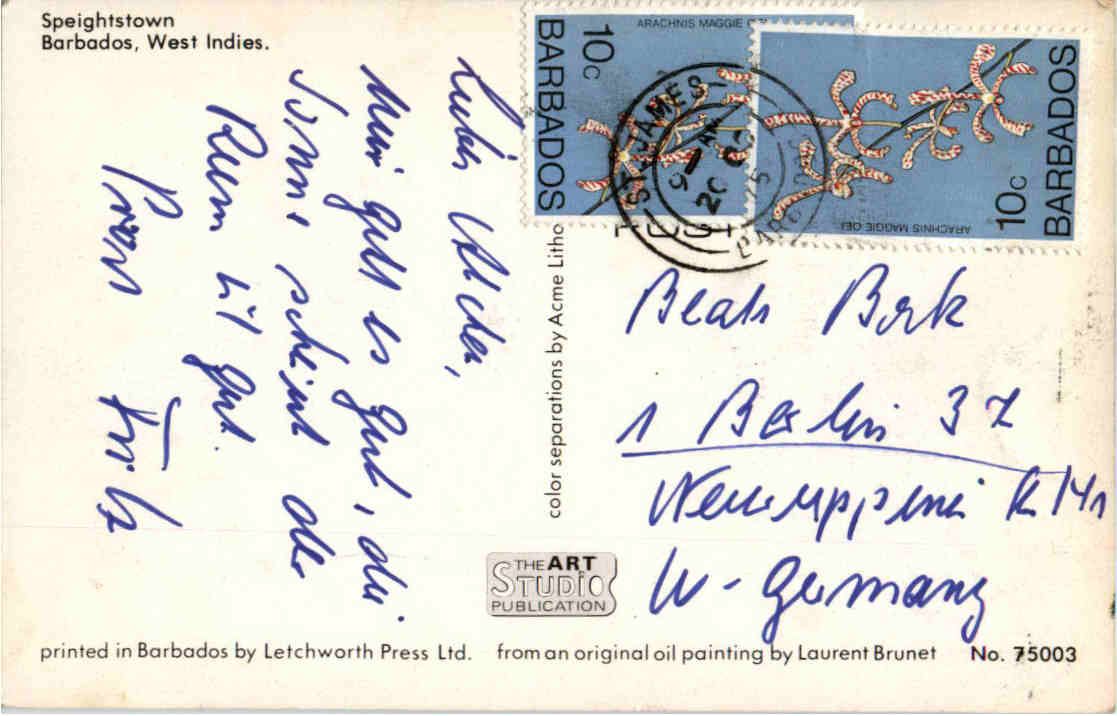 Speightstown
Barbados, West Indies.
mir geht es gut, die
Sonne scheint der
Rum ist gut.
Fritz
color separations by Acme Litho
ARACHNIS MAGGIE
10c
BARBADOS
ARACHNIS MAGGIE OEI
10c
BARBADOS
ST. JAMES
9 AM
20
Beate Bork
1 Berlin 37
W-Germany
THE ART
STUDIO
PUBLICATION
printed in Barbados by Letchworth Press Ltd. from an original oil painting by Laurent Brunet No. 75003